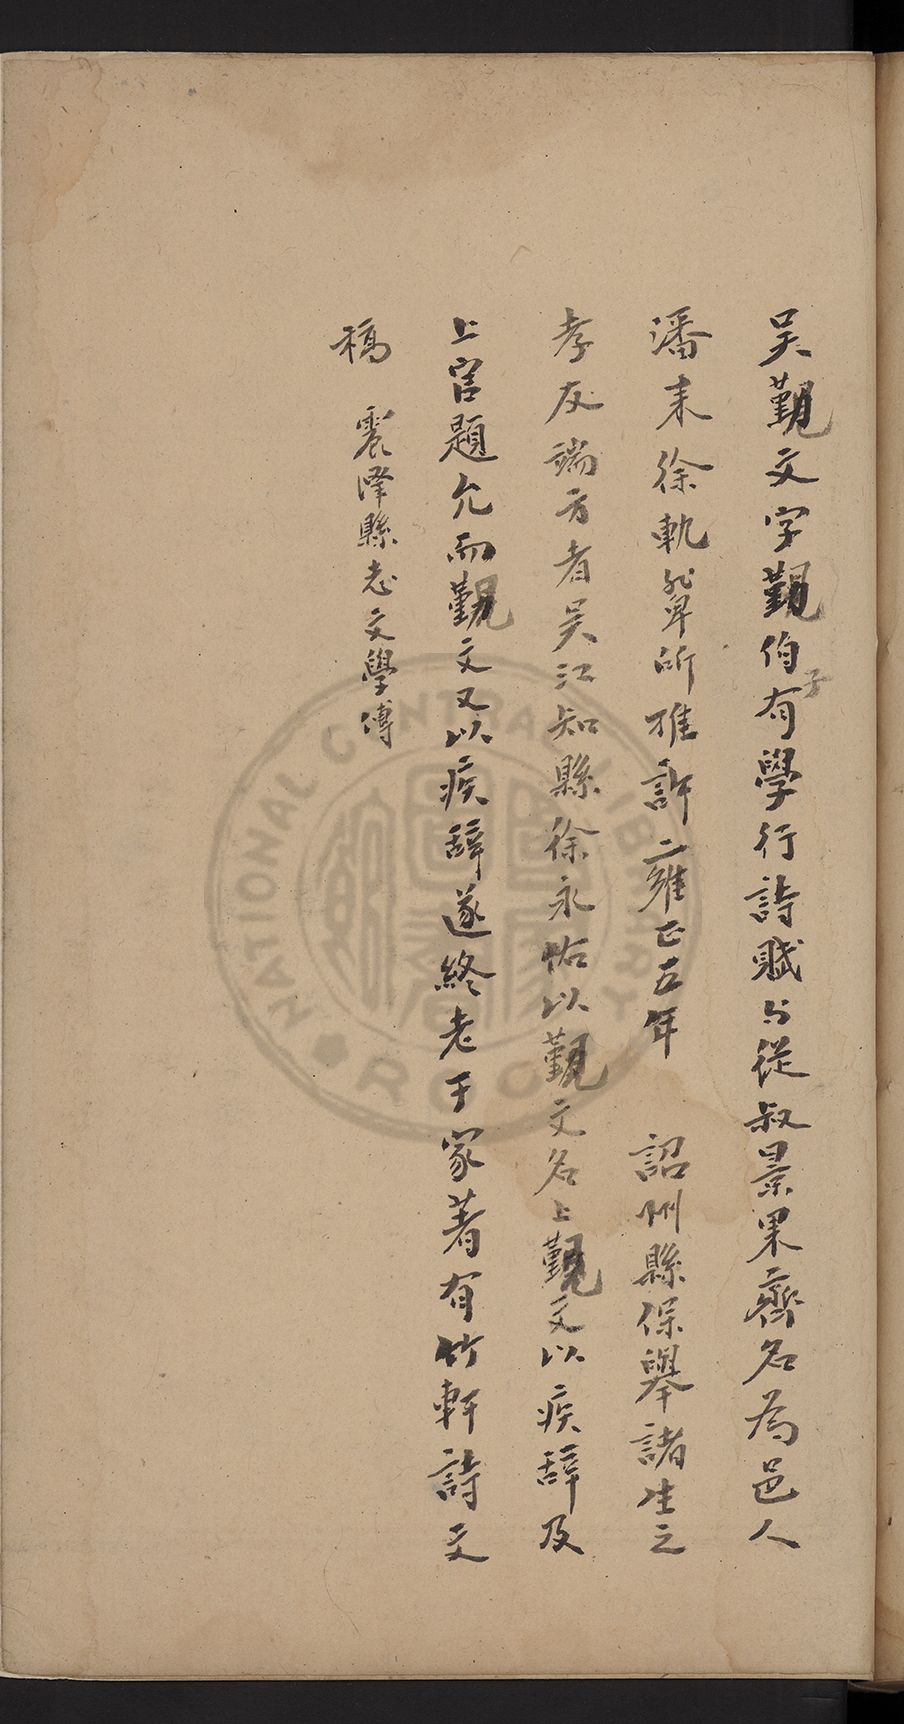 吳覲文字覲伯子有學行詩賦与從叔景果齊名為邑人
潘耒徐軌輩所推許雍正五年 詔州縣保舉諸生之
孝友端方者吳江知縣徐永祐以覲文名上覲文以疾辭及
上官題允而覲文又以疾辭遂終老于家著有竹軒詩文
稿 震澤縣志文學傳
NATIONAL CENTRAL LIBRARY
R.O.C.